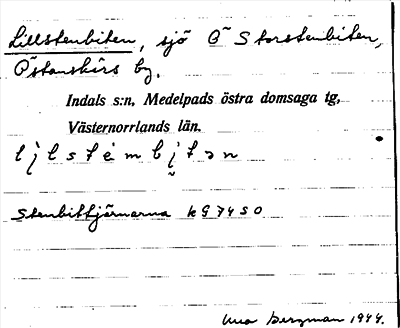 Lillstenbiten, sjö Ö Storstenbiten,
Östanskärs by.
Indals s:n, Medelpads östra domsaga tg,
Västernorrlands län.
Stenbittjärnarna kG 74 SO
Bergman 1944.